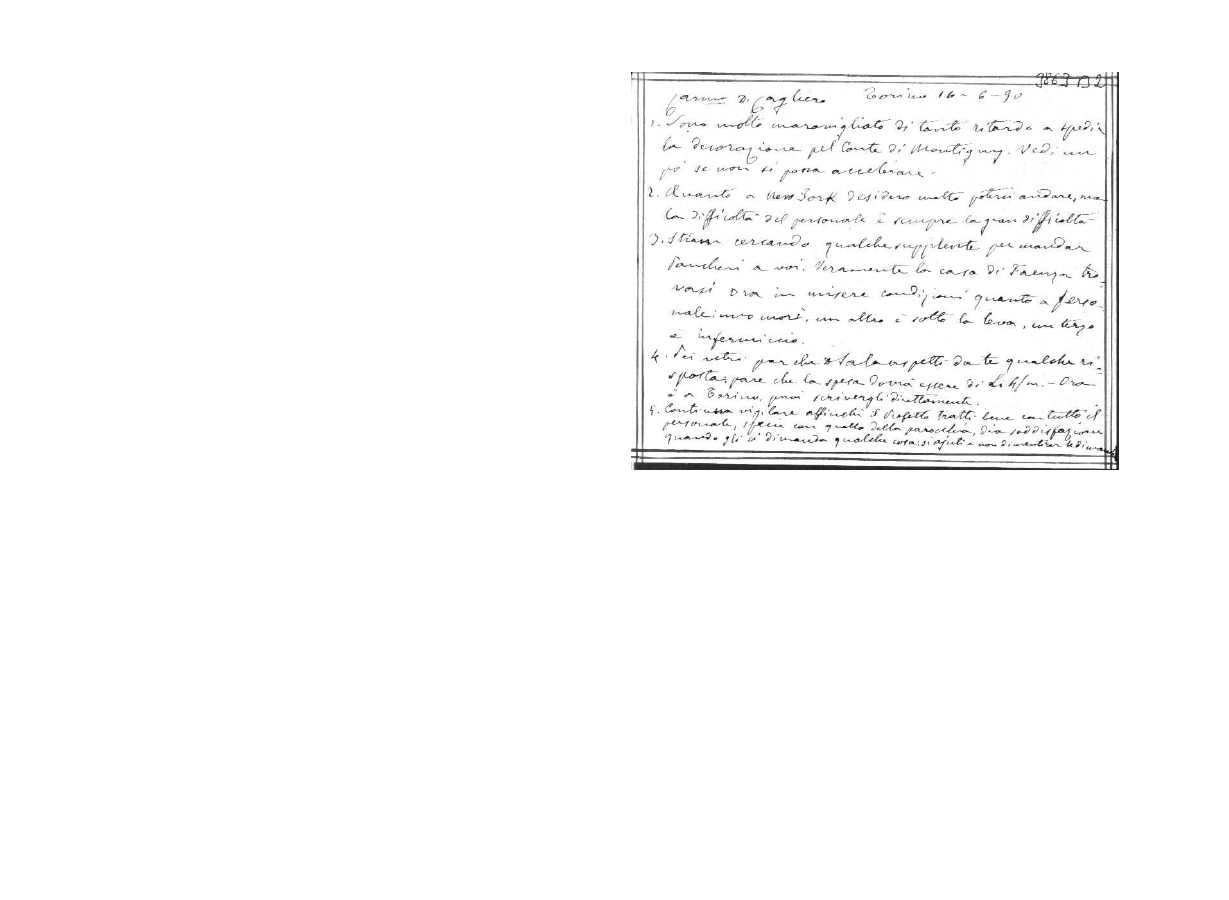 3863 D 2
Carmo D. Cagliero Torino 16-6-90
1. Sono molto maravigliato di tanto ritardo a spedir
la decorazione pel Conte di Montigny. Vedi un
po' se non si possa accelerare.
2. Quanto a New York desidero molto poterci andare, ma
la difficoltà del personale è sempre la gran difficoltà
3. Stiam cercando qualche supplente per mandar
a voi. Veramente la casa di Faenza tro-
vasi ora in misere condizioni quanto a perso-
nale: uno morì, un altro è sotto la leva, un terzo
è infermiccio.
4. Pei vetri par che D Sala aspetti da te qualche ri-
sposta: pare che la spesa dovrà essere di L. 4/m. - Ora
è a Torino, puoi scrivergli direttamente.
5. Continua vigilare affinchè il Prefetto tratti bene con tutto il
personale, specie con quello della parochia, dia soddisfazione
quando gli si dimanda qualche cosa: si ajuti a non dimenticar le